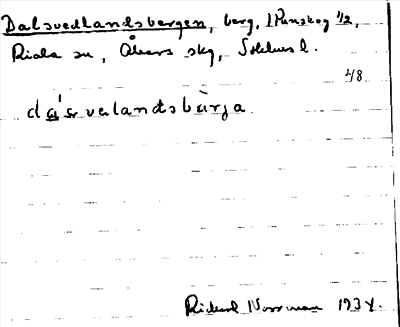 Dalsvedlandsbergen, berg, 1 Penskog 1/2,
Riala sn, Åkers skg, Sthlms l.
2/8
da'lsvedlandsbärja
Rickard Norrman 1934.